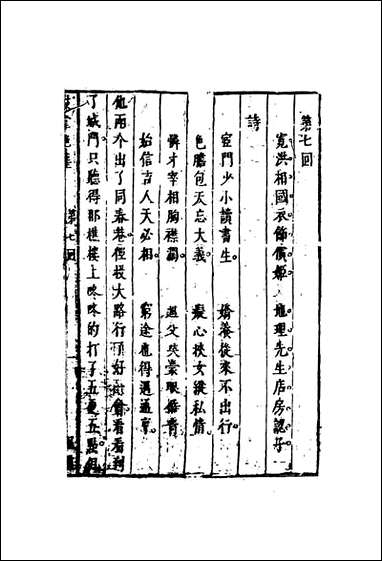 第七回
寬洪相國衣飾償姬　地理先生店房認子
詩
宦門少小讀書生。　嬌養從來不出行
色膽包天忘大義。　癡心挾女縱私情
憐才宰相胸襟濶。　父 眼
始信吉人天必相　窮途也得遇通亨。
他兩个出了同春巷徑投大路行了好 會看看到
了城門只聽得那樵樓上咚咚的打了五更五點
第七回